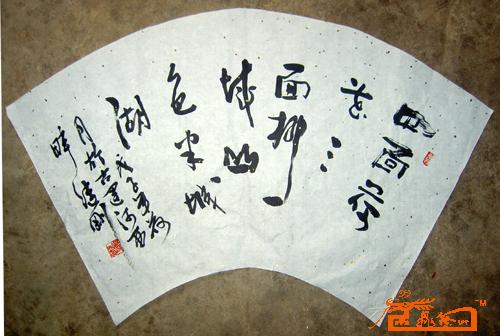 四面荷
花三
面柳一
城山
色半城
湖
戊子年荷
月於古運河西
畔